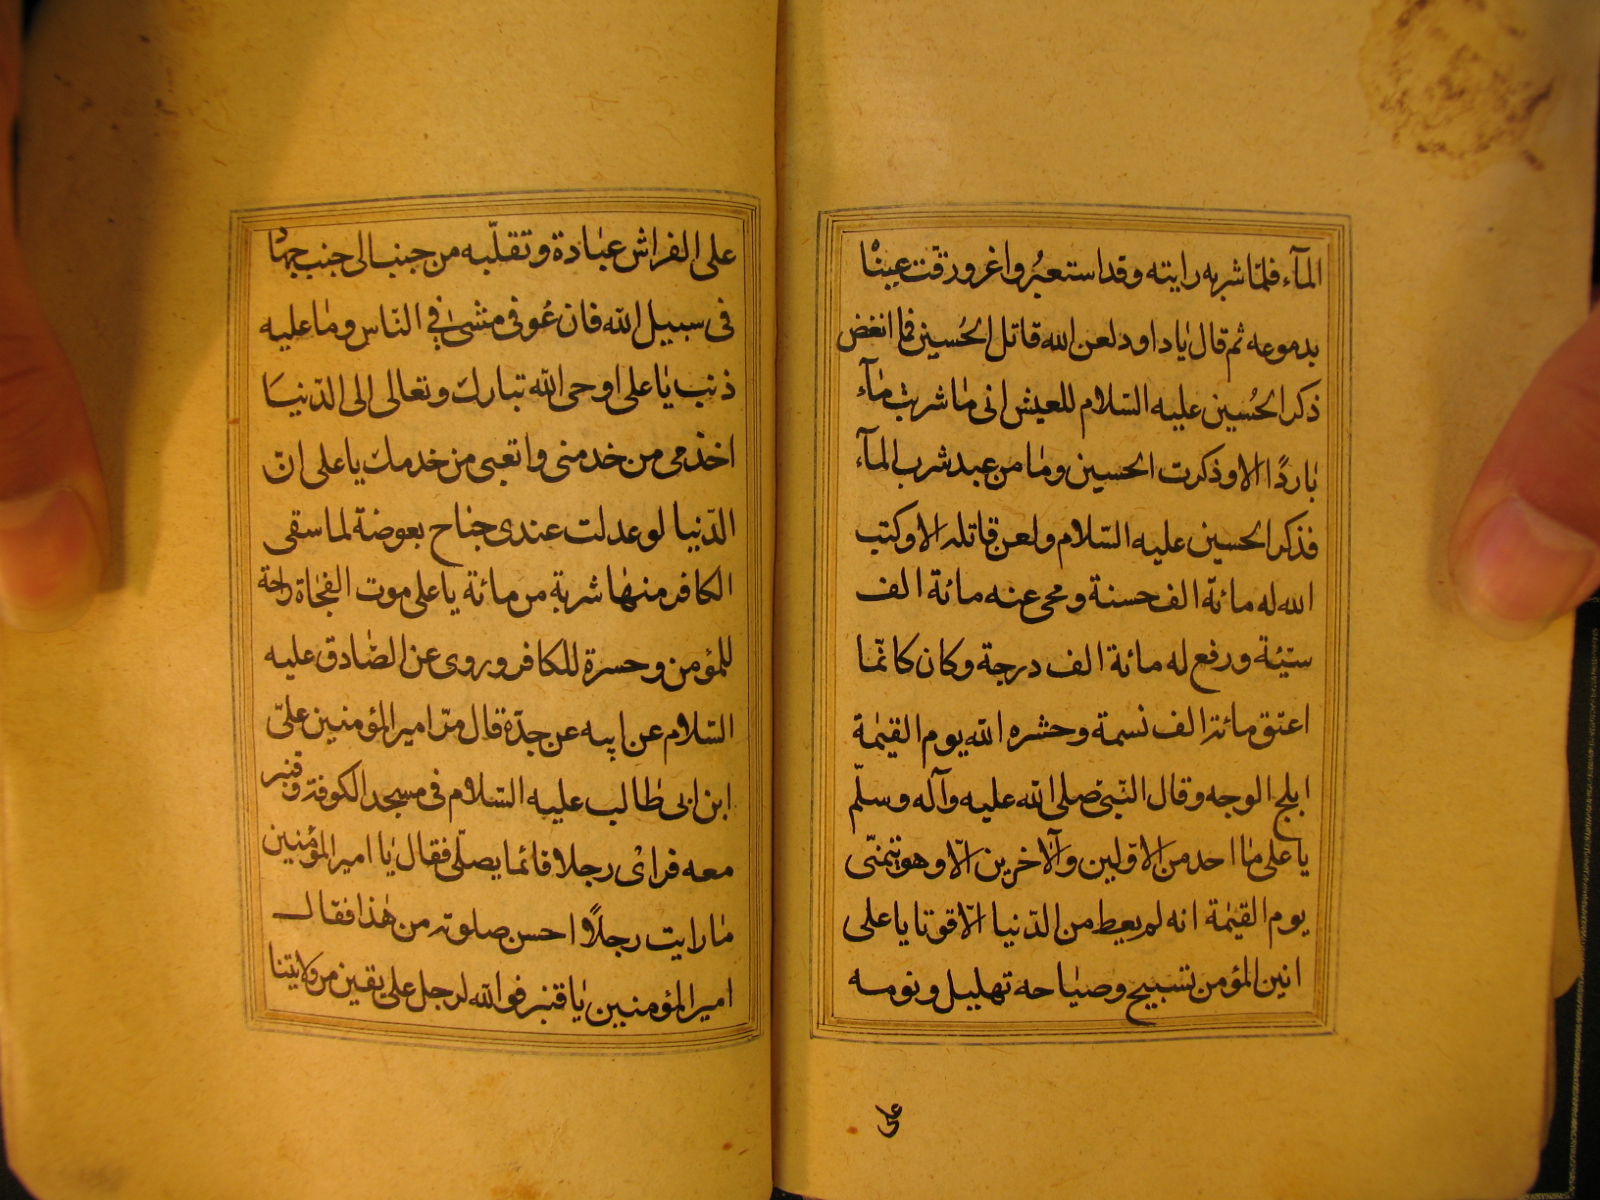 المآء فلمّا شربه رايته وقد استعبر واغرورقت عيناه
بدموعه ثم قال يا داود لعن الله قاتل الحُسين فما انغض
ذكر الحُسين عليه السّلام للعيش انى ما شربت مآء
باردًا الا وذكرت الحسين وما من عبد شرب المآء
فذكر الحسين عليه السّلام ولعن قاتله الا وكتب
الله له مائة الف حسنة ومحى عنه مائة الف
سيّئة ورفع له مائة الف درجة وكان كانّما
اعتق مائة الف نسمة وحشره الله يوم القيمة
ابلج الوجه وقال النّبىّ صلى الله عليه وآله وسلّم
يا على ما احد من الاوّلين والآخرين الّا وهو يتمنّى
يوم القيمة انه لم يعط من الدّنيا الّا قوتا يا على
انين المؤمن تسبيح وصياحه تهليل ونومه
على
على الفراش عبادة وتقلّبه من جنب الى جنب جهاد
فى سبيل الله فان عُوفى مشى فى النّاس وما عليه
ذنب يا على اوحى الله تبارك وتعالى الى الدّنيا
اخدمى من خدمنى واتعبى من خدمك يا على انّ
الدّنيا لو عدلت عندى جناح بعوضة لما سقى
الكافر منها شربة من مائة يا على موت الفجاة راحة
للمؤمن وحسرة للكافر وروى عن الصّادق عليه
السّلام عن ابيه عن جدّه قال مرّ امير المؤمنين علىّ
ابن ابى طالب عليه السّلام فى مسجد الكوفة وقنبر
معه فراى رجلا قائما يصلّى فقال يا امير المؤمنين
ما رايت رجلاً احسن صلوة من هذا فقال
امير المؤمنين يا قنبر فو الله لرجل على يقين من ولايتنا